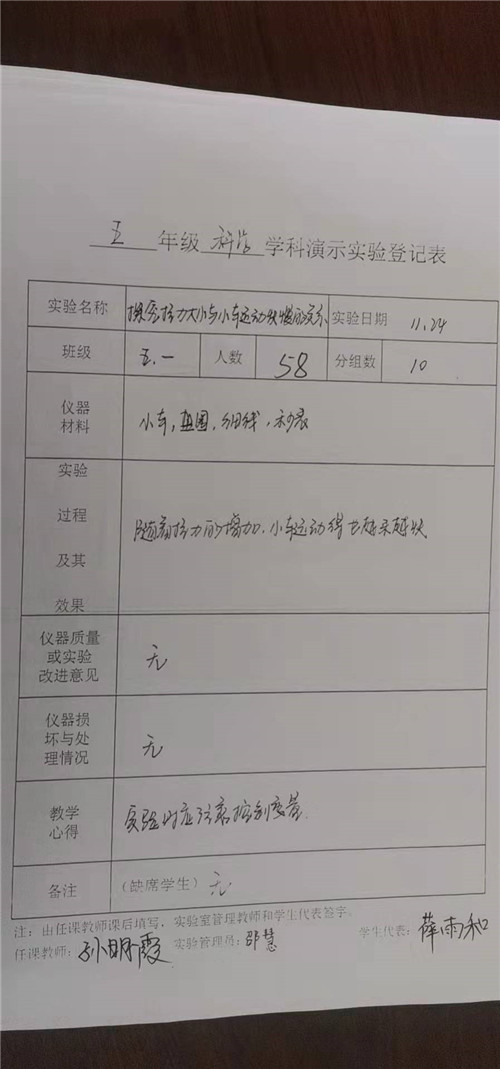 五 年级 科学 学科演示实验登记表
实验名称 探究拉力大小与小车运动快慢的关系 实验日期 11.24
班级 五.一 人数 58 分组数 10
仪器
材料
小车,垫圈,细线,秒表
实验
过程
及其
效果
随着拉力的增加,小车运动得也越来越快
仪器质量
或实验
改进意见
无
仪器损
坏与处
理情况
无
教学
心得
实验时应注意控制变量
备注 (缺席学生) 无
注:由任课教师课后填写,实验室管理教师和学生代表签字。
任课教师:孙明霞 实验管理员:邵慧 学生代表:薛雨和